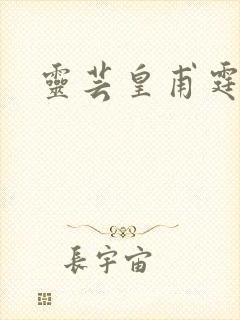 靈芸皇甫霆
長宇宙